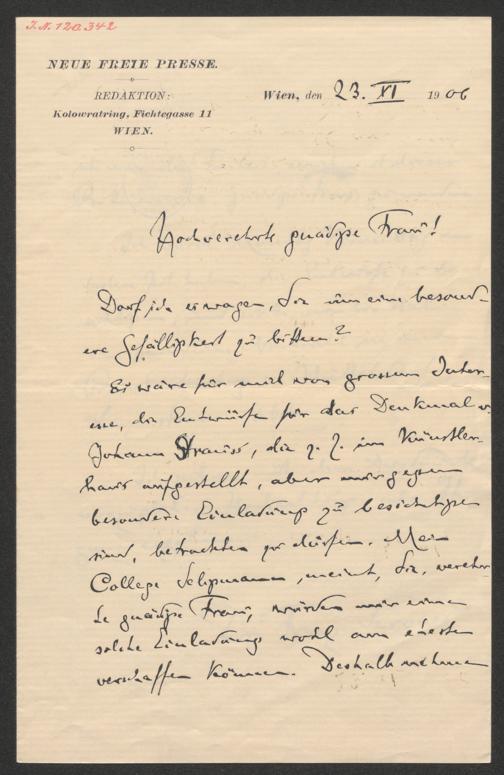 I.N. 120.342
NEUE FREIE PRESSE.
REDAKTION:
Kolowratring, Fichtegasse 11
WIEN.
Wien, den 23. XI 1906
Hochverehrte gnädige Frau!
Darf ich es wagen, Sie um eine besond-
ere Gefälligkeit zu bitten?
Es wäre für mich von grossem Inter-
esse, die Entwürfe für das Denkmal v.
Johann Strauss, die z. Z. im Künstler-
haus aufgestellt, aber nur gegen
besondere Einladung zu besichtigen
sind, betrachten zu dürfen. Mein
College Seligmann, meint, Sie, verehr-
te gnädige Frau, würden mir eine
solche Einladung wohl am ehesten
verschaffen können. Deshalb nehme